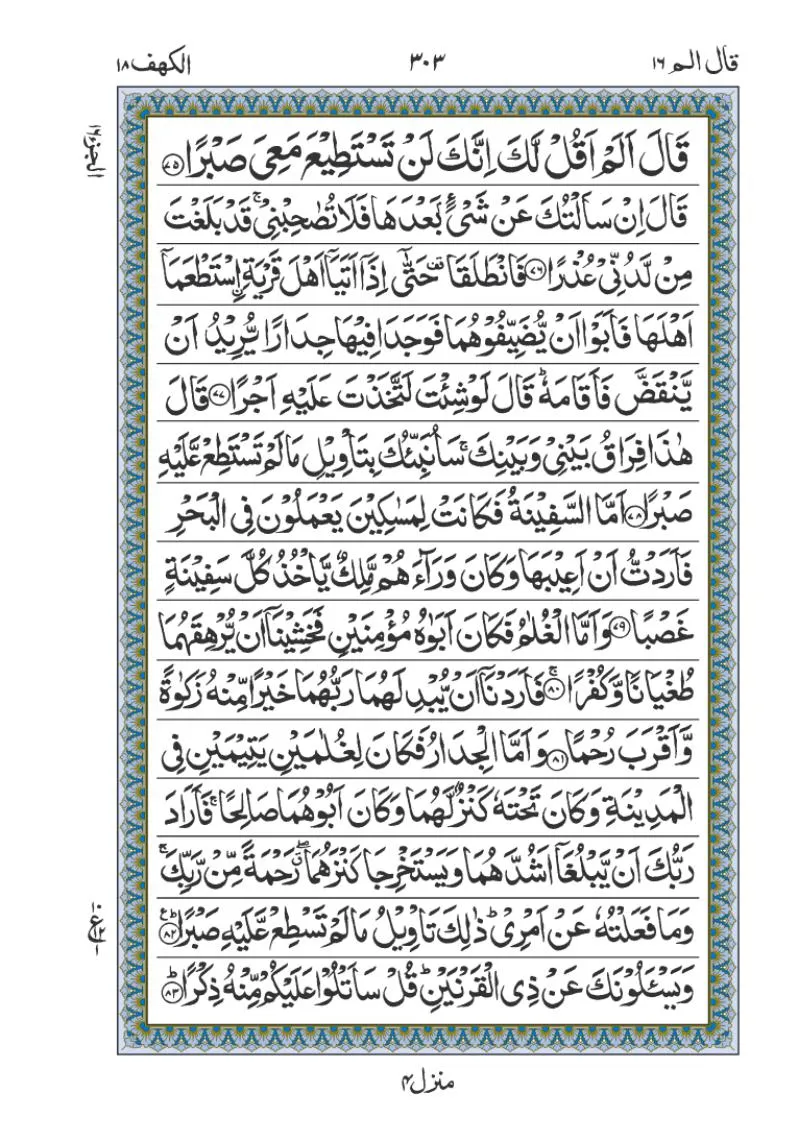 قال الم ١٦ ٣٠٣ الكهف ١٨
الجزء ١٦
قَالَ اَلَمْ اَقُلْ لَّكَ اِنَّكَ لَنْ تَسْتَطِيْعَ مَعِيَ صَبْرًا ﴿۷۵﴾
قَالَ اِنْ سَاَلْتُكَ عَنْ شَیْءٍۭ بَعْدَهَا فَلَا تُصٰحِبْنِیْ ۚ قَدْ بَلَغْتَ
مِنْ لَّدُنِّیْ عُذْرًا ﴿۷۶﴾ فَانْطَلَقَا ٙ حَتّٰۤی اِذَاۤ اَتَیَاۤ اَهْلَ قَرْیَةِ ِ۟اسْتَطْعَمَاۤ
اَهْلَهَا فَاَبَوْا اَنْ یُّضَیِّفُوْهُمَا فَوَجَدَا فِیْهَا جِدَارًا یُّرِیْدُ اَنْ
یَّنْقَضَّ فَاَقَامَهٗ ؕ قَالَ لَوْ شِئْتَ لَتَّخَذْتَ عَلَیْهِ اَجْرًا ﴿۷۷﴾ قَالَ
هٰذَا فِرَاقُ بَیْنِیْ وَبَیْنِكَ ۚ سَاُنَبِّئُكَ بِتَاْوِیْلِ مَا لَمْ تَسْتَطِعْ عَّلَیْهِ
صَبْرًا ﴿۷۸﴾ اَمَّا السَّفِیْنَةُ فَكَانَتْ لِمَسٰكِیْنَ یَعْمَلُوْنَ فِی الْبَحْرِ
فَاَرَدْتُّ اَنْ اَعِیْبَهَا وَكَانَ وَرَآءَهُمْ مَّلِكٌ یَّاْخُذُ كُلَّ سَفِیْنَةٍ
غَصْبًا ﴿۷۹﴾ وَاَمَّا الْغُلٰمُ فَكَانَ اَبَوٰهُ مُؤْمِنَیْنِ فَخَشِیْنَاۤ اَنْ یُّرْهِقَهُمَا
طُغْیَانًا وَّكُفْرًا ﴿۸۰﴾ۚ فَاَرَدْنَاۤ اَنْ یُّبْدِلَهُمَا رَبُّهُمَا خَیْرًا مِّنْهُ زَكٰوةً
وَّاَقْرَبَ رُحْمًا ﴿۸۱﴾ وَاَمَّا الْجِدَارُ فَكَانَ لِغُلٰمَیْنِ یَتِیْمَیْنِ فِی
الْمَدِیْنَةِ وَكَانَ تَحْتَهٗ كَنْزٌ لَّهُمَا وَكَانَ اَبُوْهُمَا صَالِحًا ۚ فَاَرَادَ
رَبُّكَ اَنْ یَّبْلُغَاۤ اَشُدَّهُمَا وَیَسْتَخْرِجَا كَنْزَهُمَا ۖۗ رَحْمَةً مِّنْ رَّبِّكَ ۚ
وَمَا فَعَلْتُهٗ عَنْ اَمْرِیْ ؕ ذٰلِكَ تَاْوِیْلُ مَا لَمْ تَسْطِعْ عَّلَیْهِ صَبْرًا ﴿۸۲﴾ؕ
وَیَسْـَٔلُوْنَكَ عَنْ ذِی الْقَرْنَیْنِ ؕ قُلْ سَاَتْلُوْا عَلَیْكُمْ مِّنْهُ ذِكْرًا ﴿۸۳﴾ؕ
منزل ۴